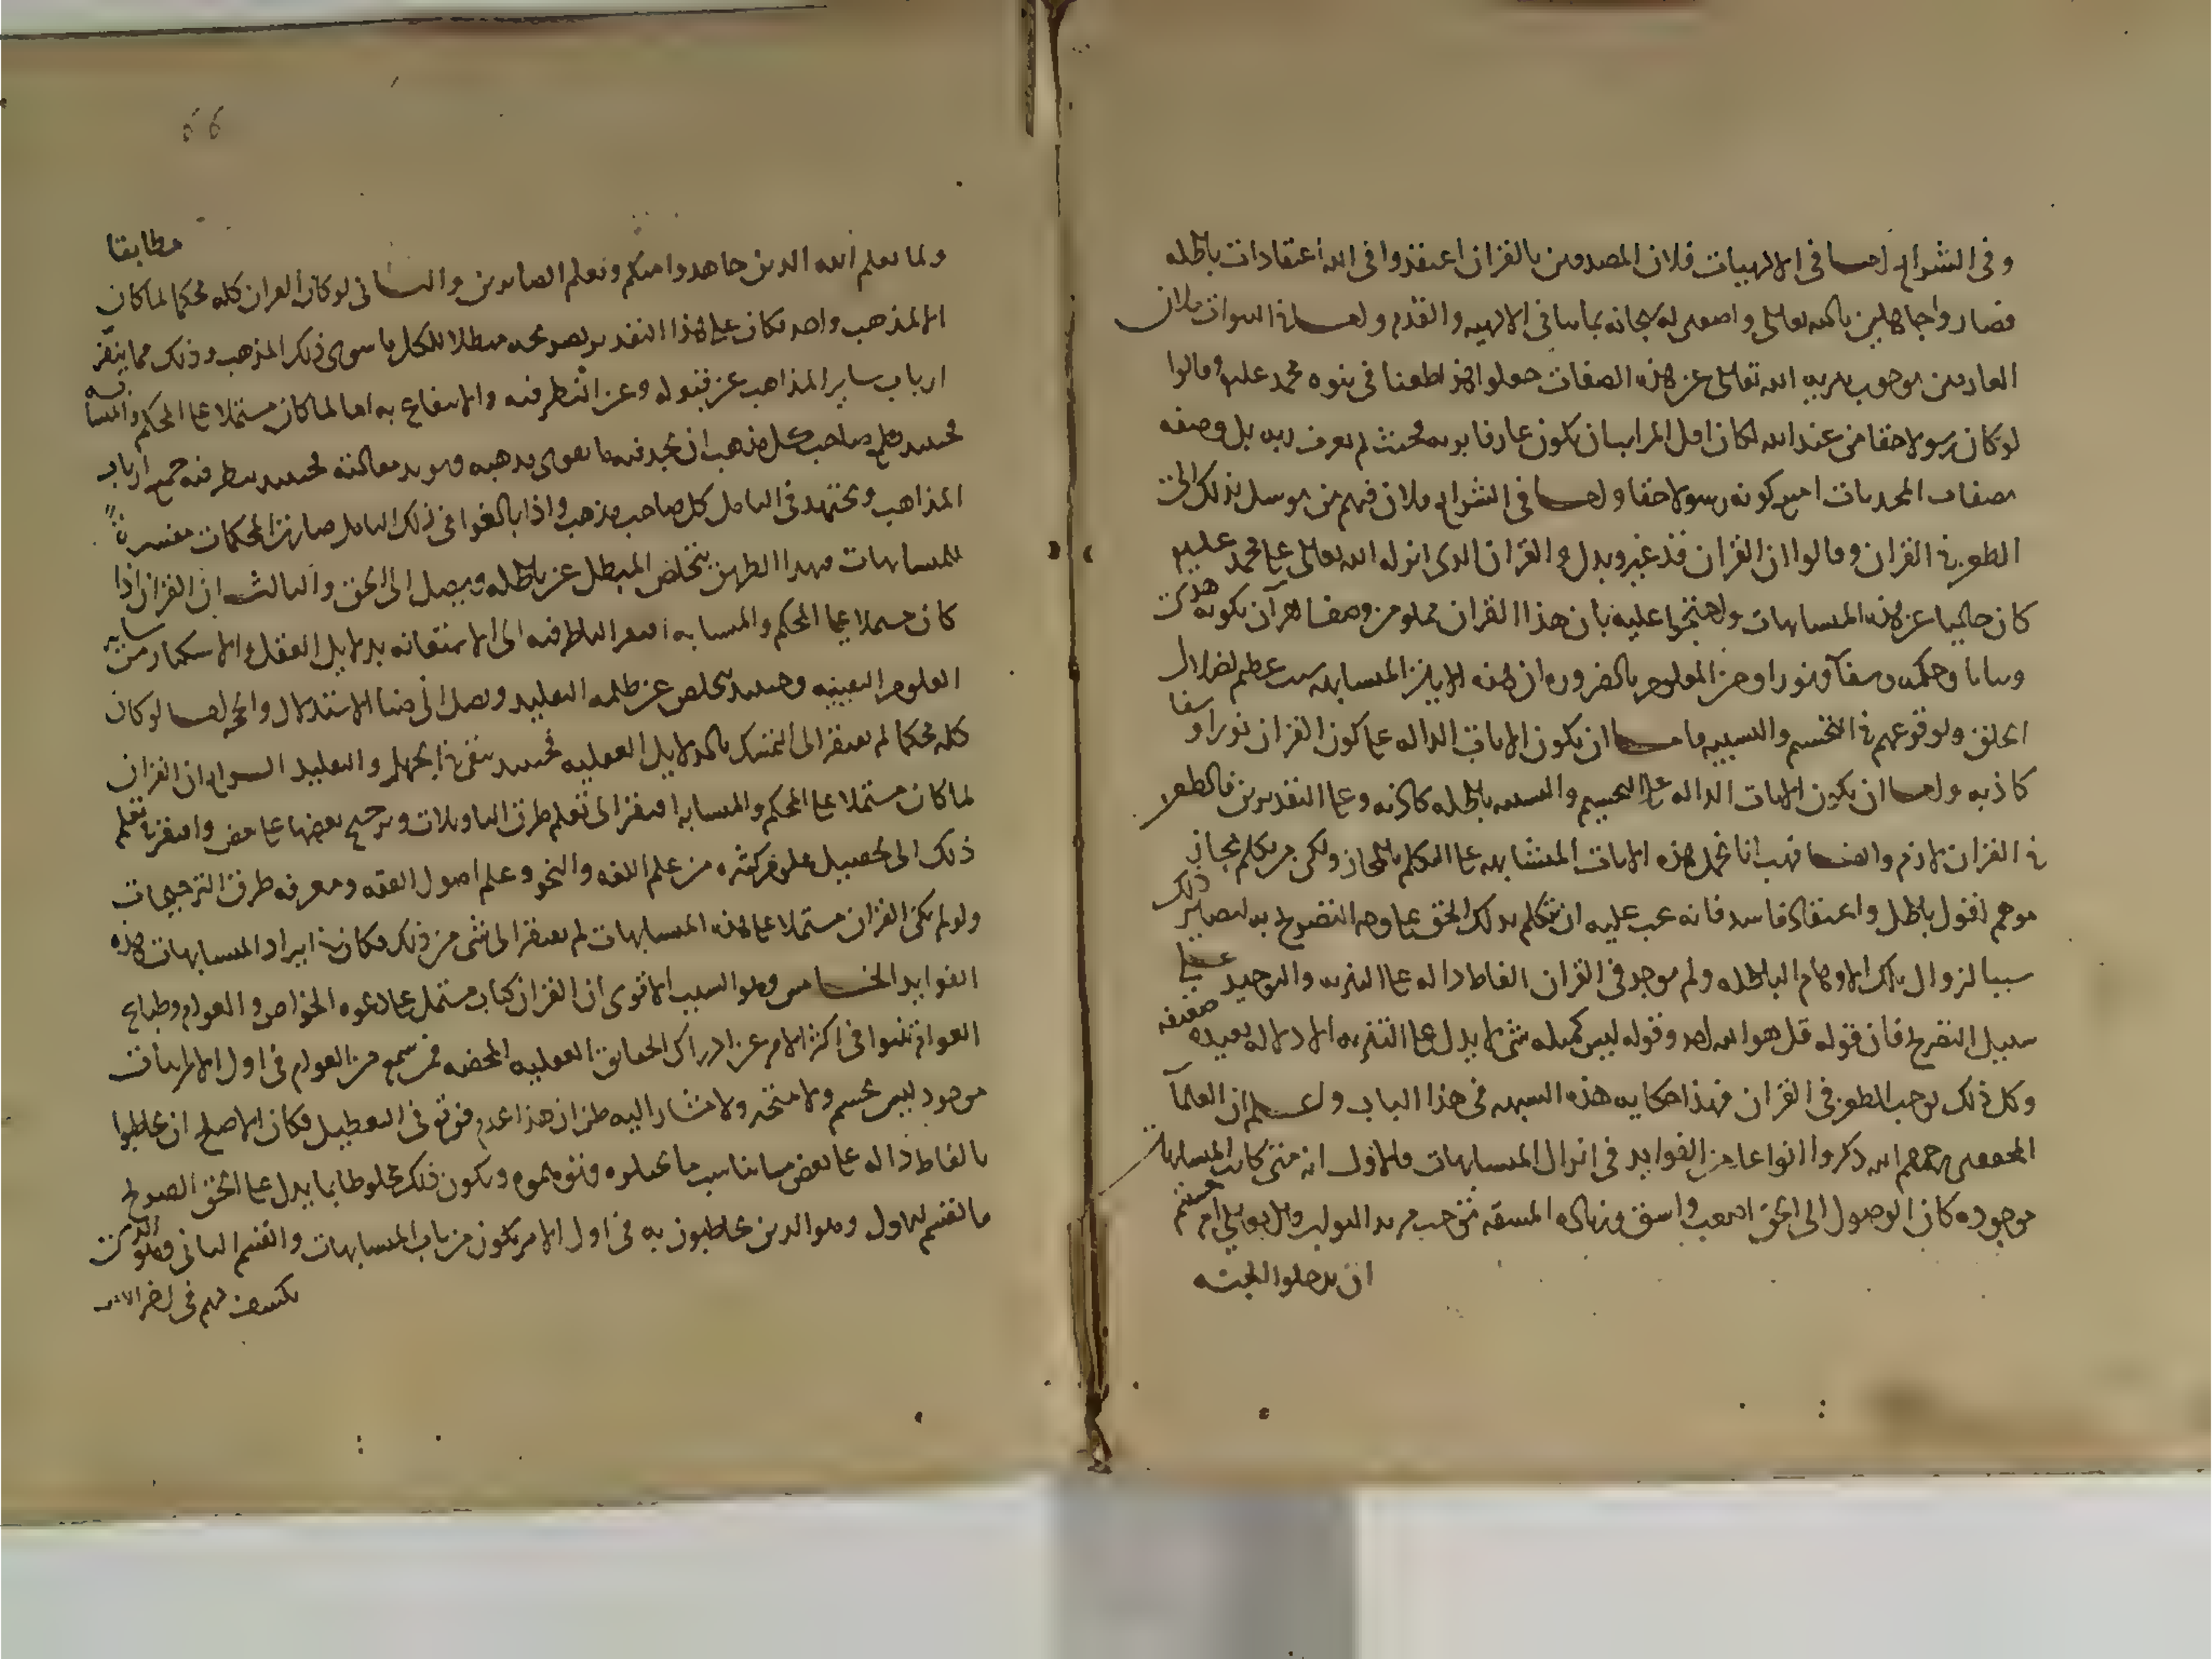 وفى الشرايع اما فى الالهيات فلان المصدقين بالقران اعتقدوا فى الله اعتقادات باطله
فصاروا جاهلين بالله تعالى واصفين له سبحانه بما ينافى الالهيه والقدم واما فى النبوات فلان
العارفين بوجوب تنزيه الله تعالى عن هذه الصفات جعلوا هذا طعنا فى نبوه محمد عليه وقالوا
لو كان رسولا حقا من عند الله لكان اقل المراتب ان يكون عارفا بربه فحيث لم يعرف ربه بل وصفه
بصفات المحدثات امتنع كونه رسولا حقا واما فى الشرايع فلان فيهم من توسل بذلك الى
الطعن فى القران وقالوا ان القران قد غير وبدل والقران الذى انزله الله تعالى على محمد عليه
كان خاليا عن هذه المتشابهات واحتجوا عليه بان هذا القران مملو من وصف القرآن بكونه هدى
وبيانا وحكمه وشفآ ونورا ومن المعلوم بالضروره ان هذه الايات المتشابهه سبب عظيم لضلال
الخلق ولوقوعهم فى التجسيم والتشبيه فاما ان يكون الايات الداله على كون القران نورا وشفا
كاذبه واما ان يكون الايات الداله على التجسيم والتشبيه باطله كاذبه وعلى التقديرين فالطعن
فى القران لازم وايضا فهب انا نحمل هذه الايات المتشابهه على التكلم بالمجاز ولكن من تكلم بمجاز
موهم لقول باطل واعتقاد فاسد فانه يجب عليه ان يتكلم بذلك الحق على وجه التصريح به ليصير ذلك
سببا لزوال تلك الاوهام الباطله ولم يوجد فى القران الفاظ داله على التنزيه والتوحيد على
سبيل التصريح فان قوله قل هو الله احد وقوله ليس كمثله شى لا يدل على التنزيه الا دلاله بعيده ضعيفه
وكل ذلك يوجب الطعن فى القران فهذا حكايه هذه الشبهه فى هذا الباب واعلم ان العلمآ
المحققين رحمهم الله ذكروا انواعا من الفوايد فى انزال المتشابهات فالاول انه متى كانت المتشابهات
موجوده كان الوصول الى الحق اصعب واشق وزياده المشقه توجب مزيد الثواب قال تعالى ام حسبتم
ان تدخلوا الجنه
ولما يعلم الله الذين جاهدوا منكم ويعلم الصابرين والثانى لو كان القران كله محكما لما كان مطابقا
الا لمذهب واحد فكان على هذا التقدير بصريحه مبطلا لكل ما سوى ذلك المذهب وذلك مما ينفر
ارباب ساير المذاهب عن قبوله وعن النظر فيه والانتفاع به اما لما كان مشتملا على المحكم والمتشابه
فحينئذ يطمع صاحب كل مذهب ان يجد فيه ما يقوى مذهبه ويويد مقالته فحينئذ ينظر فيه جميع ارباب
المذاهب ويجتهد فى التامل كل صاحب مذهب واذا بالغوا فى ذلك التامل صارت المحكمات مفسرة
للمتشابهات فبهذا الطريق يتخلص المبطل عن باطله ويصل الى الحق والثالث ان القران اذا
كان مشتملا على المحكم والمتشابه افتقر الناظر فيه الى الاستعانه بدلايل العقل والاستكثار من ساير
العلوم اليقينيه وحينئذ يتخلص عن ظلمه التقليد ويصل الى ضيا الاستدلال والحجه اما لو كان
كله محكما لم يفتقر الى التمسك بالدلايل العقليه فحينئذ يبقى فى الجهل والتقليد الرابع ان القران
لما كان مشتملا على المحكم والمتشابه افتقر الى تعلم طرق التاويلات وترجيح بعضها على بعض وافتقر فى تعلم
ذلك الى تحصيل علوم كثيره من علم اللغه والنحو وعلم اصول الفقه ومعرفه طرق الترجيحات
ولو لم يكن القران مشتملا على هذه المتشابهات لم يفتقر الى شى من ذلك فكان فى ايراد المتشابهات هذه
الفوايد الخامس وهو السبب الاقوى ان القران كتاب مشتمل على دعوه الخواص والعوام وطبايع
العوام تنبوا فى اكثر الامر عن ادراك الحقايق العقليه المحضه فمن سمع من العوام فى اول الامر اثبات
موجود ليس بجسم ولا متحيز ولا مشار اليه ظن ان هذا عدم فوقع فى التعطيل فكان الاصلح ان يخاطبوا
بالفاظ داله على بعض ما يناسب ما تخيلوه وتوهموه ويكون ذلك مخلوطا بما يدل على الحق الصريح
فالقسم الاول وهو الذين يخاطبون به فى اول الامر يكون من باب المتشابهات والقسم الثانى وهو الذى
يكشف لهم فى اخر الامر